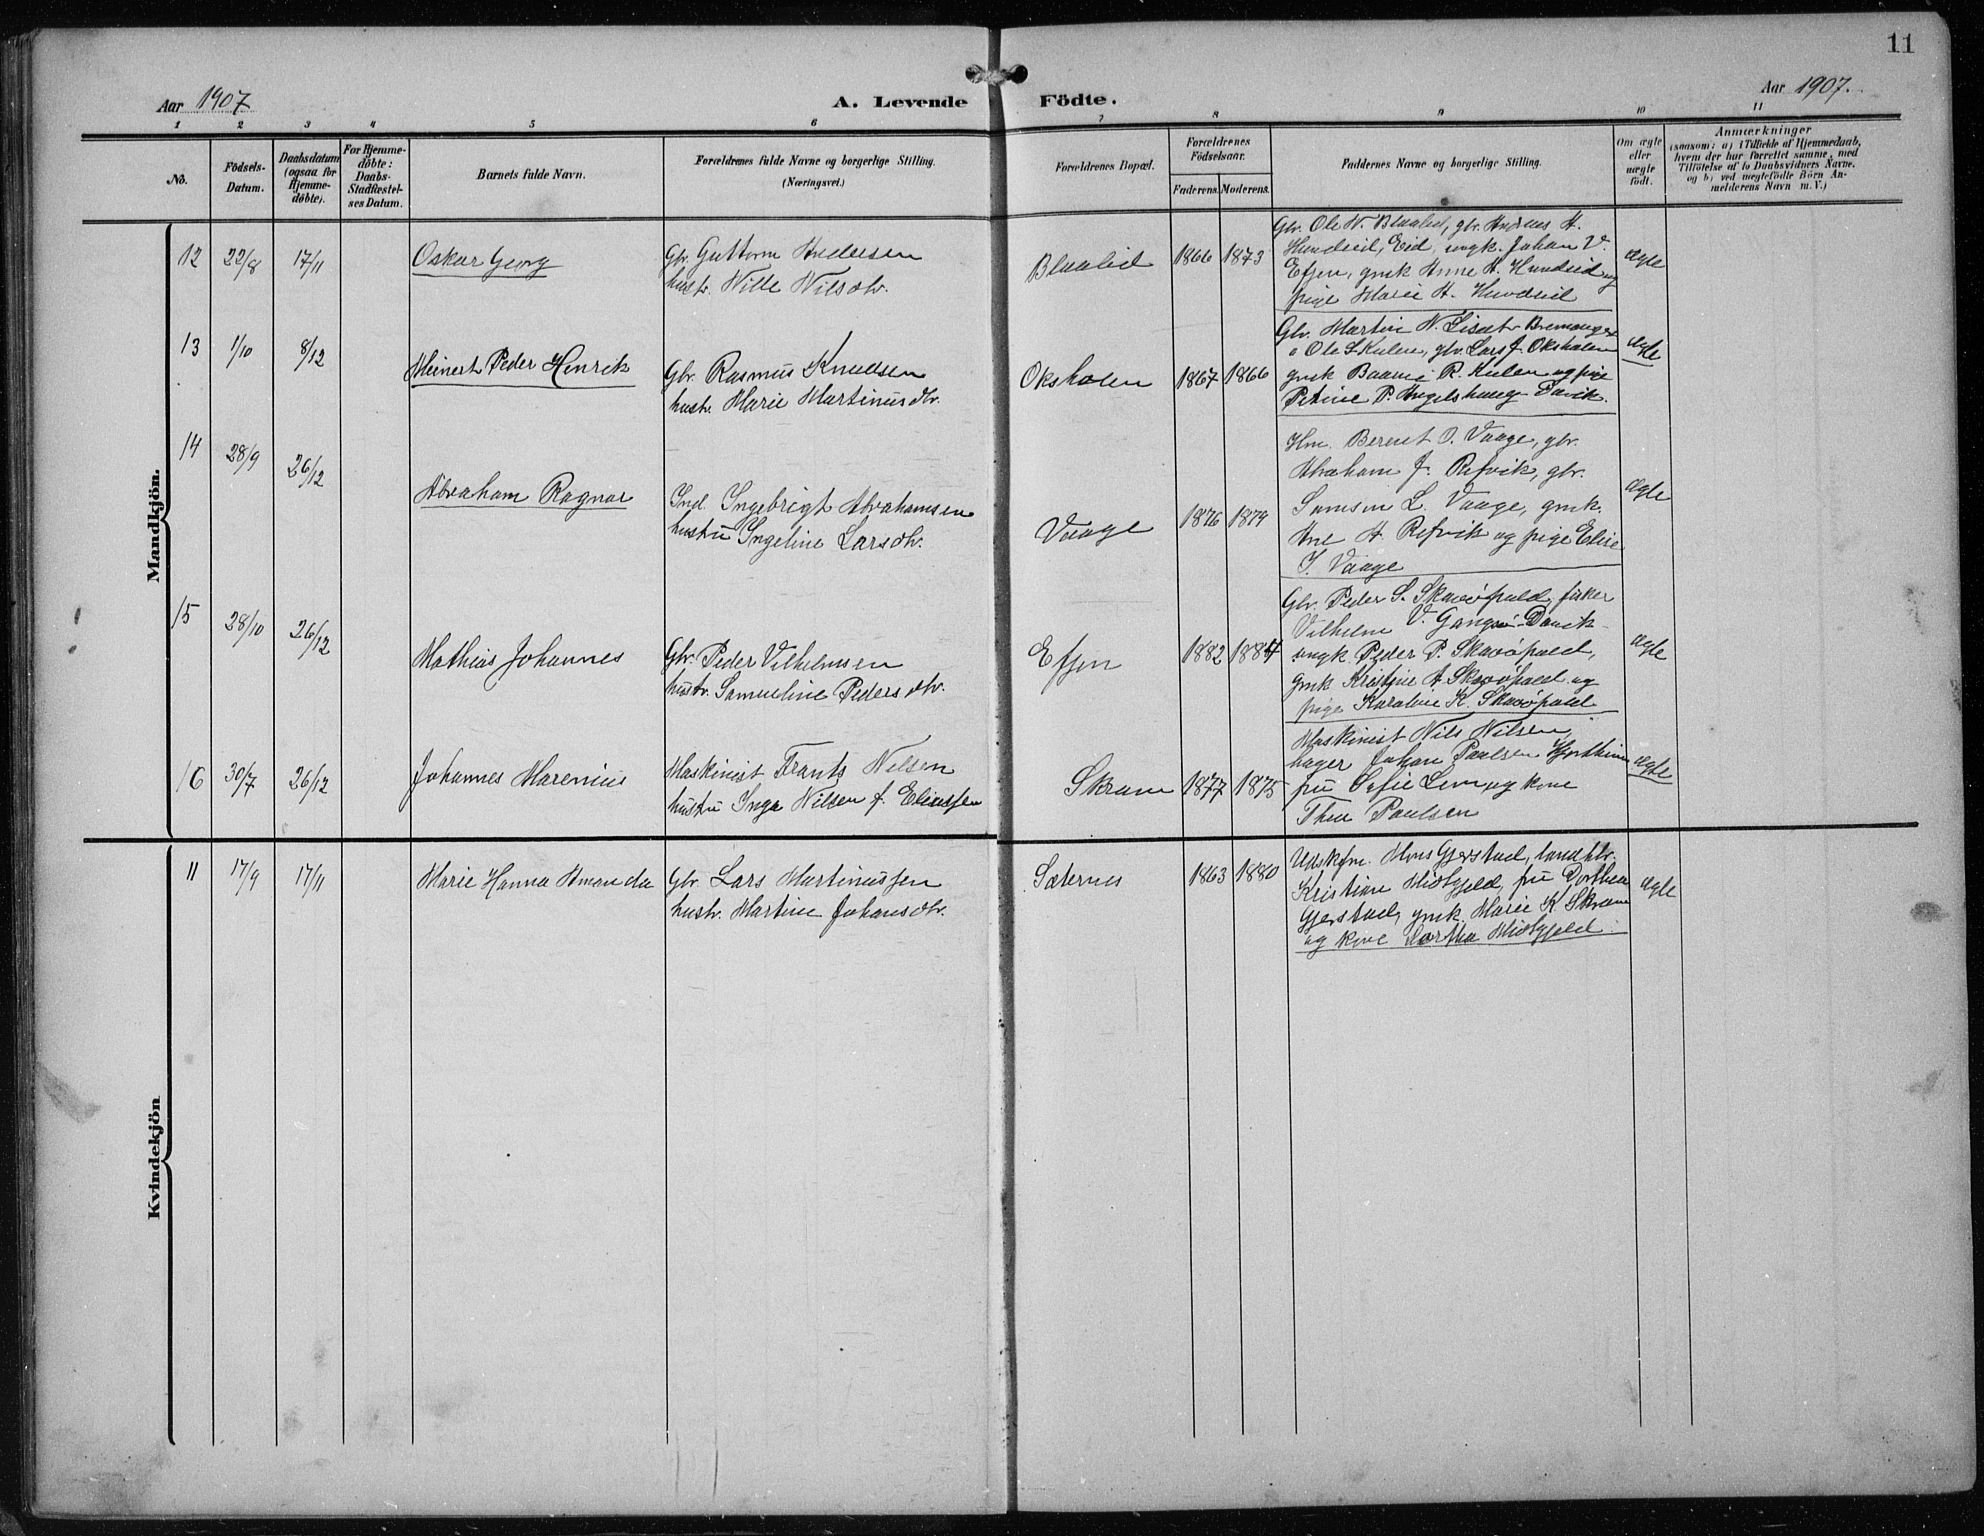 11
Aar 1907
A. Levende Födte.
Aar 1907.
1 2 3 4 5 6 7 8 9 10 11
No.
Födsels-Datum.
Daabsdatum (ogsaa for Hjemmedöbte).
For Hjemmedöbte: Daabs-Stadfæstelses Datum.
Barnets fulde Navn.
Forældrenes fulde Navne og borgerlige Stilling.
(Næringsvei.)
Forældrenes Bopæl.
Forældrenes Födselsaar.
Faderens. Moderens.
Faddernes Navne og borgerlige Stilling.
Om ægte eller uægte födt.
Anmærkninger
(saasom: a) i Tilfælde af Hjemmedaab, hvem der har forrettet samme, med Tilföielse af to Daabsvidners Navne. og b) ved uægtefödte Börn Anmelderens Navn m. V.)
Mandkjön.
12 22/8 17/11 Oskar Georg
Gbr. Guttorm Andersen
hustr. Nille Nilsdtr.
Blaalid 1866 1873
Gbr. Ole N. Blaalid, gbr. Andreas A.
Hundeid, Eid, ungk. Johan V.
Efjen, gmk Anne A. Hundeid og
pige Marie A. Hundeid
ægte
13 1/10 8/12 Meinert Peder Henrik
Gbr. Rasmus Knudsen
hustr. Marie Martinusdtr.
Oksholen 1867 1866
Gbr. Martin N. Liset Bremanger
Ole S. Kulen, gbr. Lars J. Oksholen
gmk R. Kulen og pige
Petrine P. Davik.
ægte
14 28/9 26/12 Abraham Ragnar
Ind. Ingebrigt Abrahamsen
hustru Ingeline Larsdtr.
Vaage 1876 1879
Hm. Berent O. Vaage, gbr.
Abraham J. Refvik, gbr.
Samson L. Vaage, gmk.
Ane A. Refvik og pige Elise
I. Vaage
ægte
15 28/10 26/12 Mathias Johannes
Gbr. Peder Vilhelmsen
hustr. Samueline Pedersdtr.
Efjen 1882 1884
Gbr. Peder S. Skavöpold, fisker
Vilhelm V. Gangsö Davik
ungk. Peder P. Skavöpold,
gmk Kristine A. Skavöpold og
pige Karoline K. Skavöpold
ægte
16 30/7 26/12 Johannes Marenius
Maskinist Frants Nilsen
hustru Inga Nilsen f. Eliassen
Skram 1877 1875
Maskinist Nils Nilsen,
bager Johan Paulsen
fru Sofie Lem, og kone
Thea Paulsen
ægte
Kvindekjön
11 17/9 17/11 Marie Hanna Amanda
Gbr. Lars Martinussen
hustr. Martine Johansdtr.
Sæternes 1863 1880
Udskfm. Mons Gjerstad, landhlr.
Kristian Midtgjeld, fru Dorthea
Gjerstad, gmk. Marie K. Skram
og kone Martha Midtgjeld.
ægte